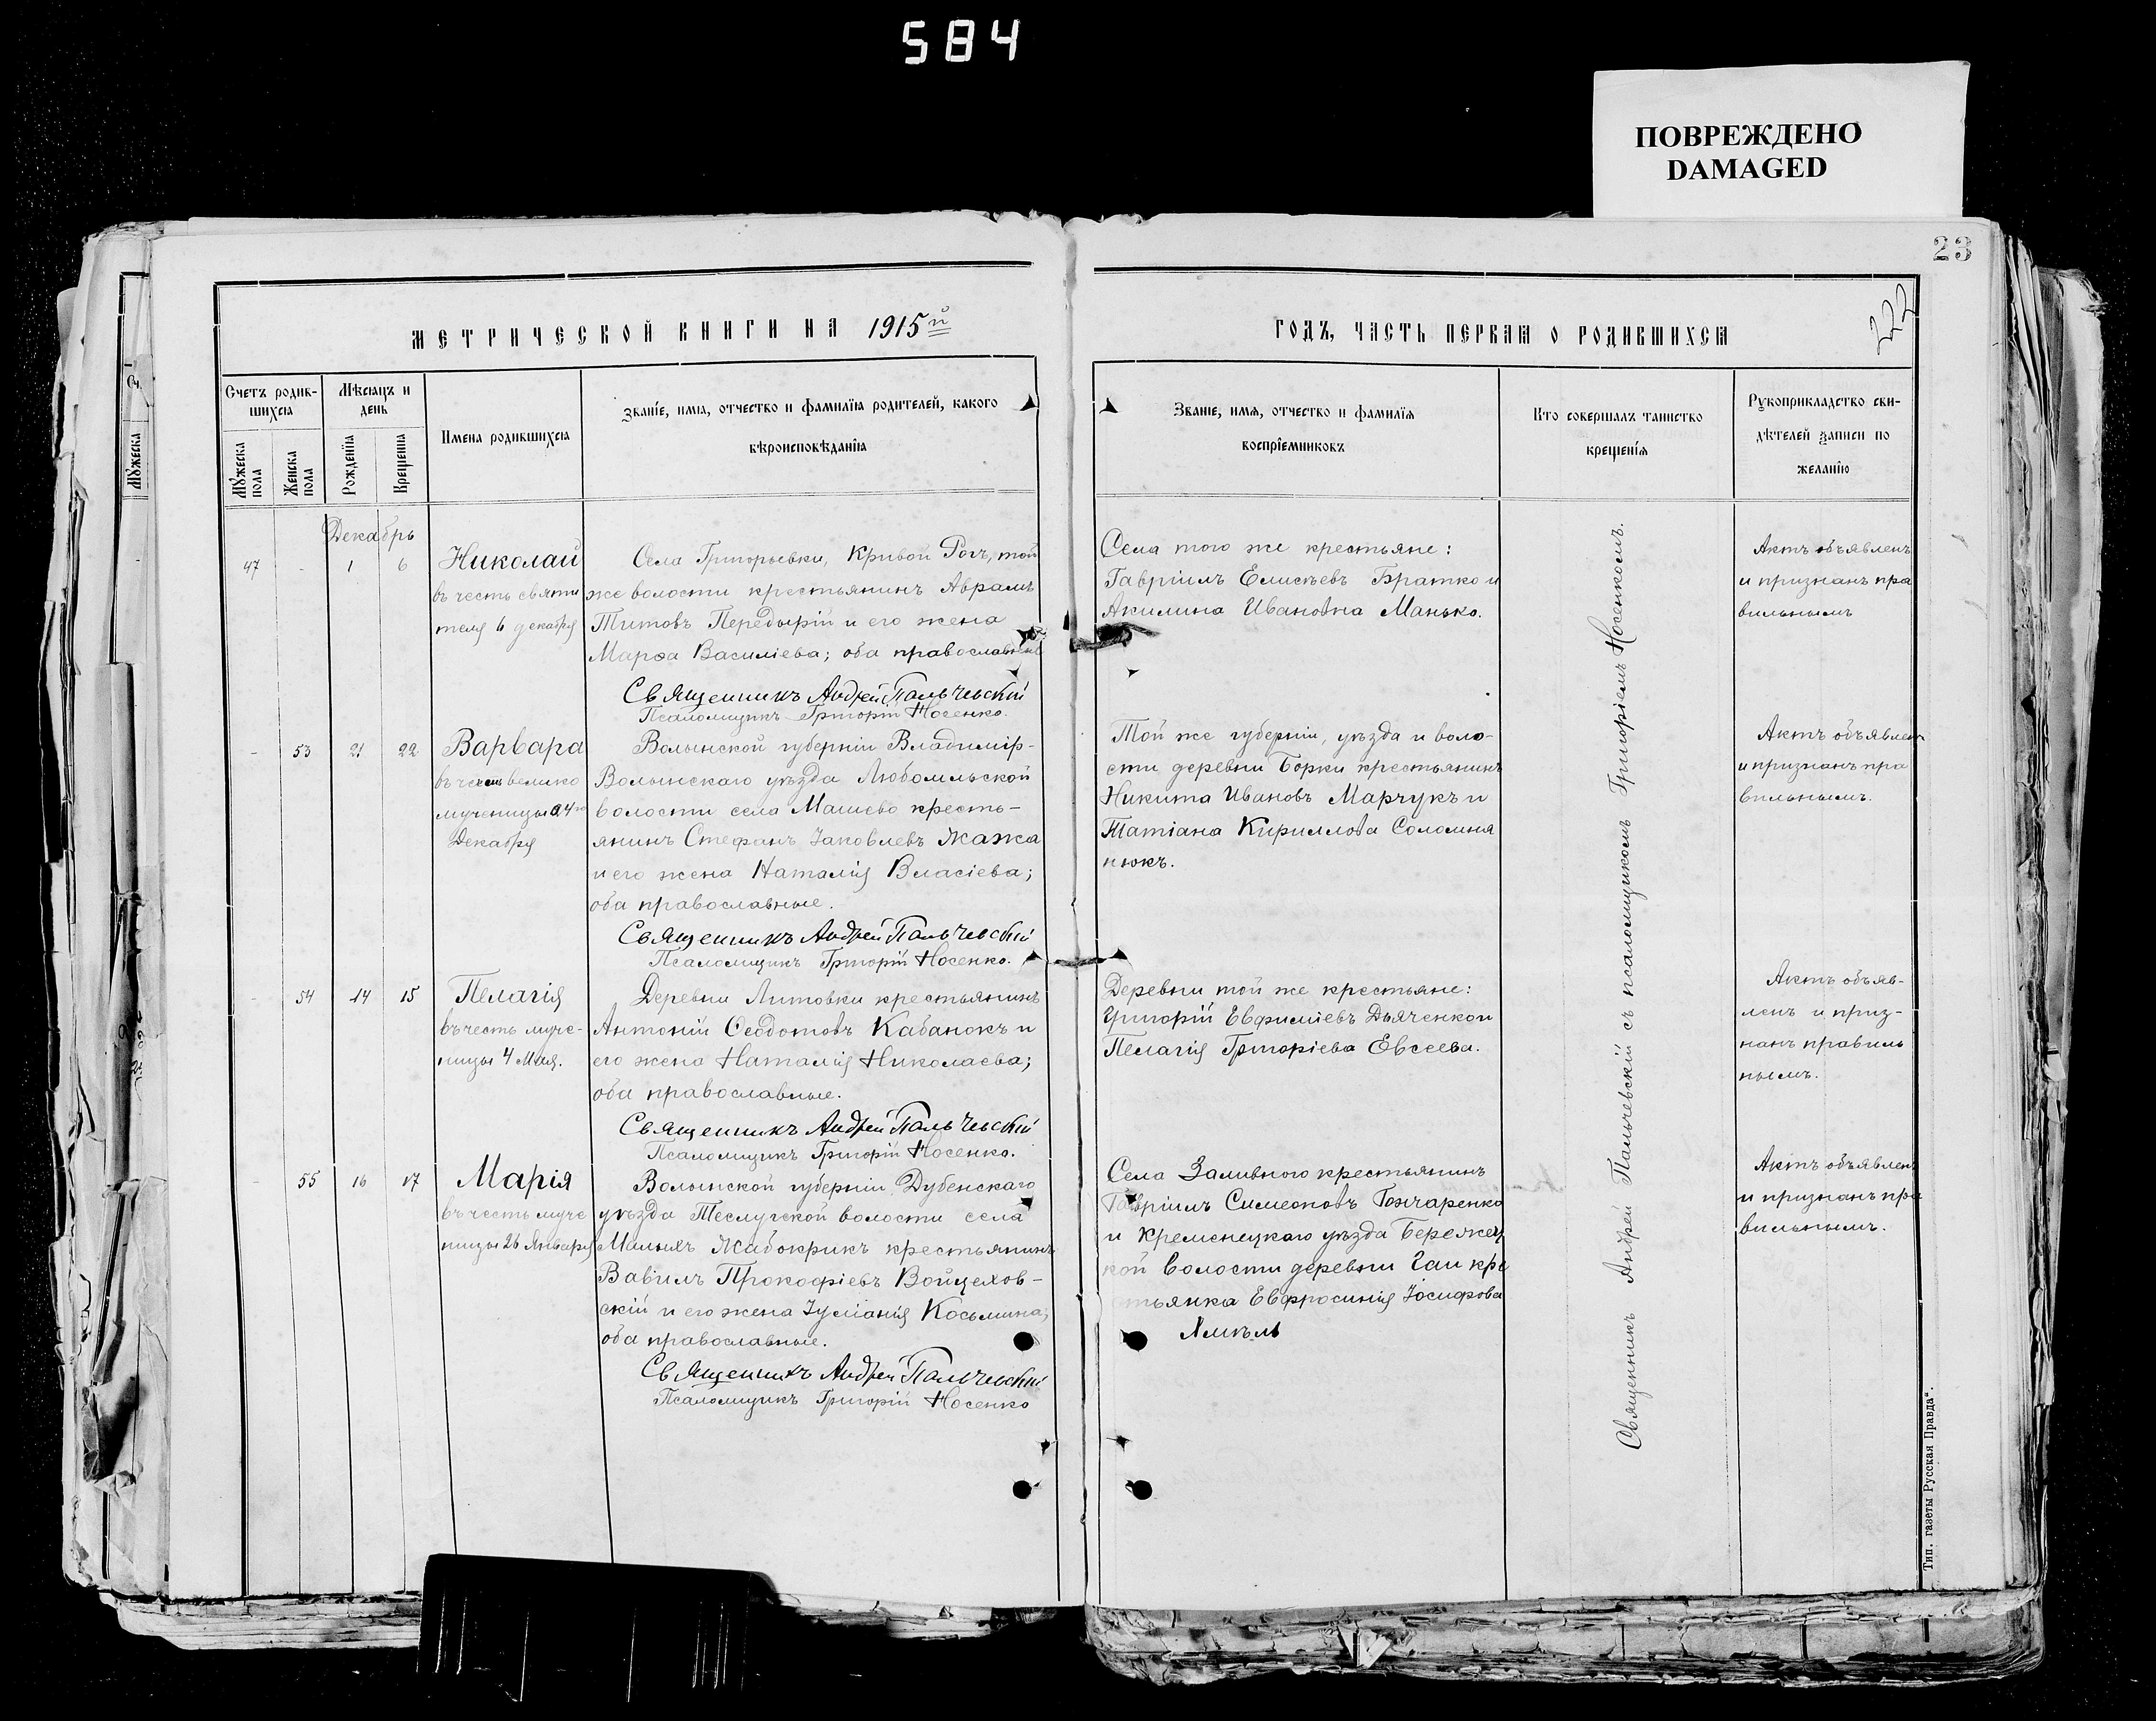 584
ПОВРЕЖДЕНО
DAMAGED
23
222
МЕТРИЧЕСКОЙ КНИГИ НА 1915й
Счетъ родив-
шихся
Мѣсяцъ и
день
Мужеска
пола
Женска
пола
Рожденія
Крещенія
Имена родившихся
Званіе, имя, отчество и фамилія родителей, какого
вѣроисповѣданія
Декабрь
47 - 1 6
Николай
въ честь святи
теля 6 декабря
Села Григорьевки, Кривой Рогъ, той
же волости крестьянинъ Аврамъ
Титовъ Передырій и его жена
Марѳа Василіева; оба православные
Священникъ Андрей Пальчевскій
Псаломщикъ Григорій Носенко.
- 53 21 22
Варвара
въ честь велико
мученицы 4го
Декабря
Волынской губерніи Владимір-
Волынскаго уѣзда Любомльской
волости села Машево кресть-
янинъ Стефанъ Іаковлевъ Жажа
и его жена Наталія Власіева;
оба православные.
Священникъ Андрей Пальчевскій
Псаломщикъ Григорій Носенко.
- 54 14 15
Пелагія
въ честь муче-
ницы 4 Мая.
Деревни Литовки крестьянинъ
Антоній Ѳеодотовъ Кабанокъ и
его жена Наталія Николаева;
оба православные.
Священникъ Андрей Пальчевскій
Псаломщикъ Григорій Носенко.
- 55 16 17
Марія
въ честь муче
ницы 26 Января
Волынской губерніи Дубенскаго
уѣзда Теслугской волости села
Малыхъ Жабокрикъ крестьянинъ
Вавилъ Прокофіевъ Войцехов-
скій и его жена Іуліанія Косьмина;
оба православные.
Священникъ Андрей Пальчевскій
Псаломщикъ Григорій Носенко
ГОДЪ, ЧАСТЬ ПЕРВАЯ О РОДИВШИХСЯ
Званіе, имя, отчество и фамилія
воспріемниковъ
Кто совершалъ таинство
крещенія
Рукоприкладство сви-
дѣтелей записи по
желанію
Села того же крестьяне:
Гавріилъ Елисѣевъ Братко и
Акилина Ивановна Манько.
Актъ объявленъ
и признанъ пра
вильнымъ
Той же губерніи, уѣзда и воло-
сти деревни Борки крестьянинъ
Никита Ивановъ Марчукъ и
Татіана Кириллова Соломия
нюкъ.
Актъ объявленъ
и признанъ пра
вильнымъ.
Деревни той же крестьяне:
Григорій Евфиміевъ Дьяченко и
Пелагія Григоріева Евсеева.
Актъ объяв-
ленъ и приз-
нанъ правиль
нымъ.
Села Заливного крестьянинъ
Гавріилъ Симеоновъ Гончаренко
и Кременецкаго уѣзда Бережец
кой волости деревни Гаи кре
стьянка Евфросинія Іосифова
Актъ объявленъ
и признанъ пра
вильнымъ.
Священникъ Андрей Пальчевскій съ псаломщикомъ Григоріемъ Носенкомъ.
Тип. газеты Русская Правда".